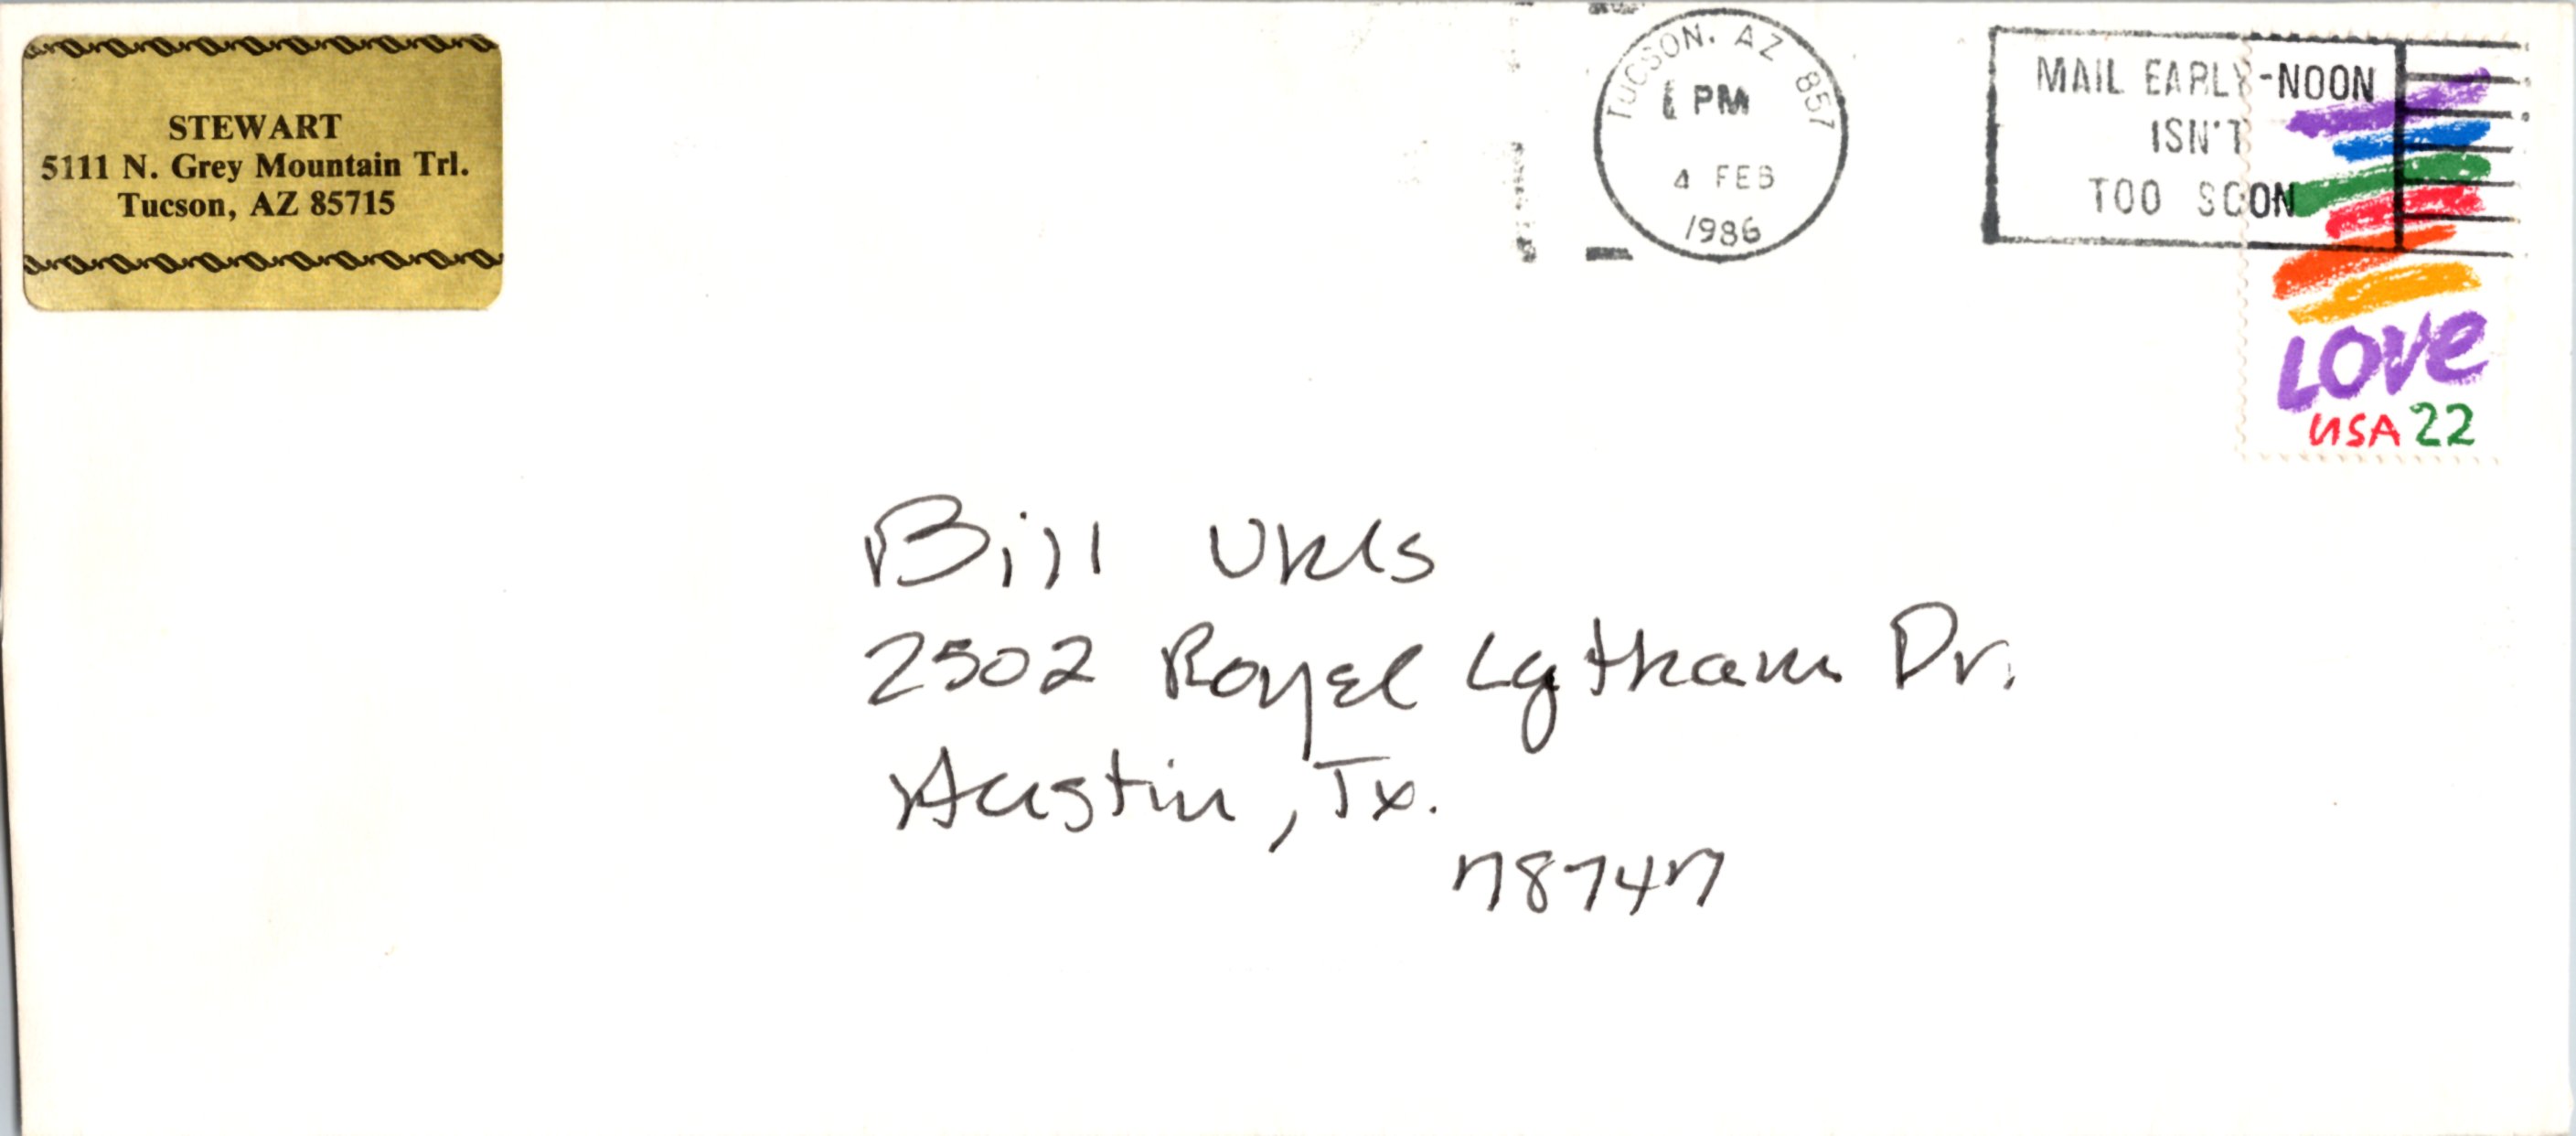 STEWART
5111 N. Grey Mountain Trl.
Tucson, AZ 85715
TUCSON, AZ 857
PM
4 FEB
1986
MAIL EARLY-NOON
ISN'T
TOO SOON
LOVE
USA 22
Bill
2502 Royal Lytham Dr.
Austin, Tx.
78747